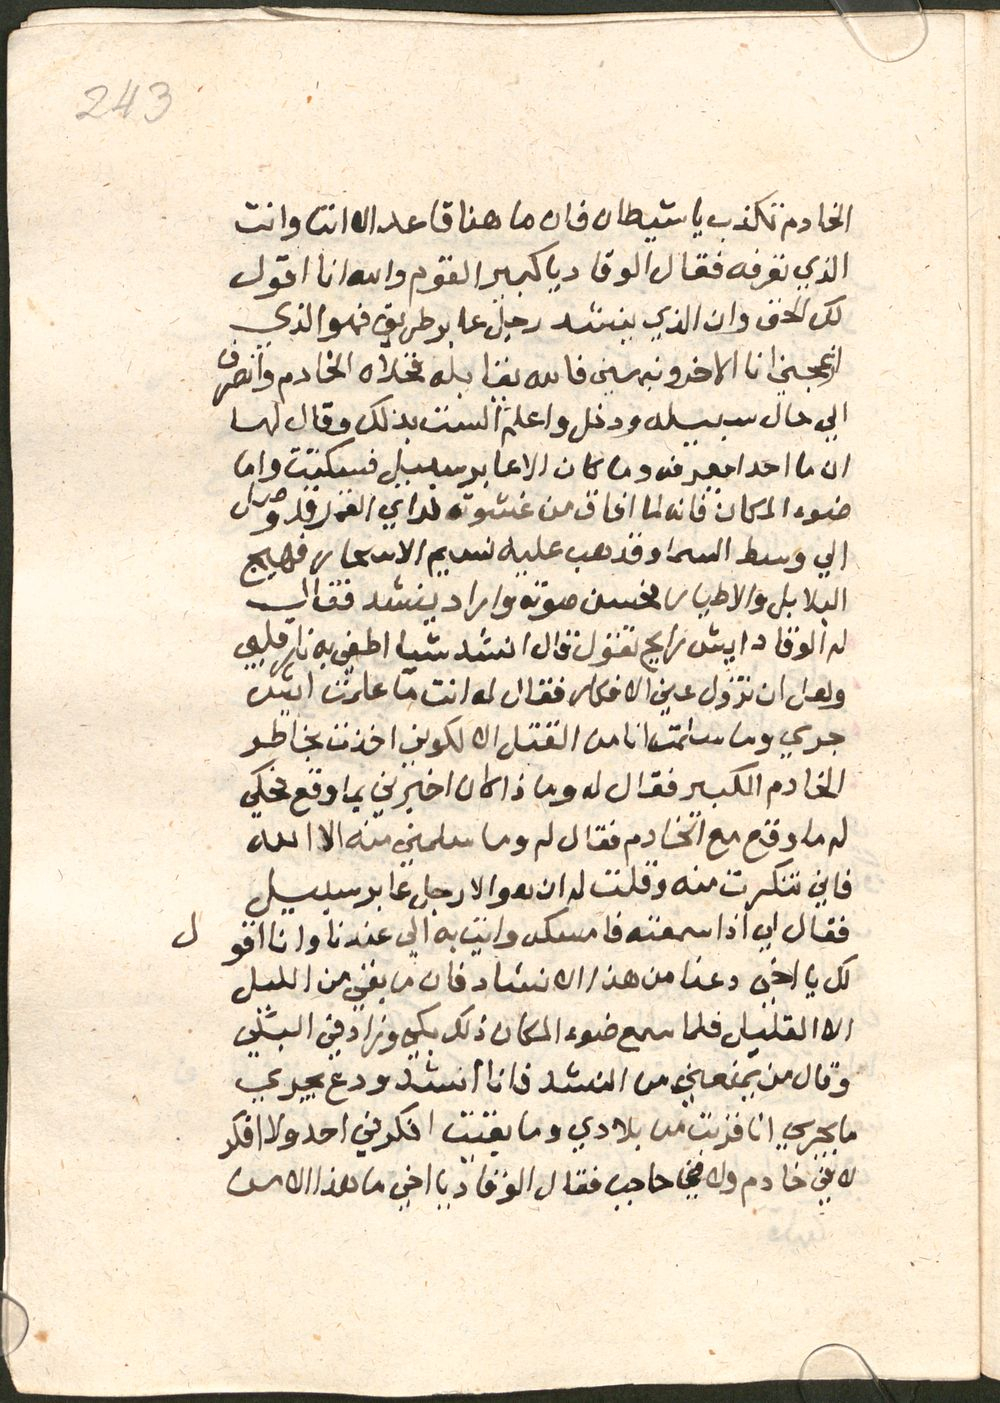 243
الخادم تكذب يا شيطان فان ما هنا قاعد الا انت وانت
الذي تعرفه فقال الوقاد يا كبير القوم والله انا اقول
لك الحق وان الذي ينشد رجل عابر طريق فهو الذي
ازعجني انا الاخر ونبهني فالله يقابله فخلاه الخادم وانصرف
الي حال سبيله ودخل واعلم الست بذلك وقال لها
ان ما احد اعرفه وما كان الا عابر سبيل فسكتت واما
ضوء المكان فانه لما افاق من غشوته فراي القمر قد وصل
الي وسط السما وقد هب عليه نسيم الاسحار فهيج
البلابل والاطيار فحسن صوته واراد ينشد فقال
له الوقاد ايش رايح تقول قال انشد شيا اطفي به نار قلبي
ولعل ان تزول عني الافكار فقال له انت ما علمت ايش
جري وما سلمت انا من القتل الا لكوني اخذت بخاطر
الخادم الكبير فقال له وماذا كان اخبرني بما وقع فحكي
له ما وقع مع الخادم فقال له وما سلمني منه الا الله
فاني تنكرت منه وقلت له ان هو الا رجل عابر سبيل
فقال لي اذا سمعته فامسكه وايت به الي عندنا وانا اقو ل
لك يا اخي دعنا من هذا الانشاد فان ما بقي من الليل
الا القليل فلما سمع ضوء المكان ذلك بكي وزاد في البكي
وقال من يمنعني من النشد فانا انشد ودع يجري
ما يجري انا قربت من بلادي وما بقيت افكر في احد ولا افكر
لا في خادم ولا في حاجب فقال الوقاد يا اخي ما هذا الا من